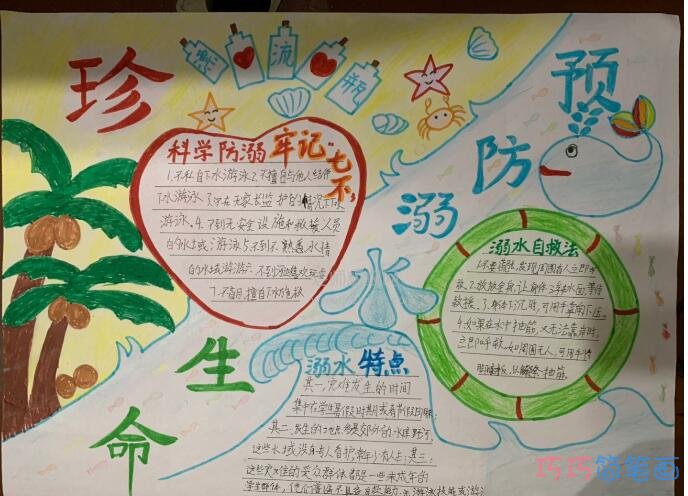 珍
生
命
预
防
溺
水
漂
流
瓶
科学防溺牢记"七不"
1.不私自下水游泳2.不擅自与他人结伴
下水游泳3.不在无家长监护的情况下水
游泳.4.不到无安全设施和救援人员
的水域游泳5不到不熟悉水情
的水域游泳6.不到河边嬉戏玩耍
7.不盲目擅自下水施救
溺水自救法
1.不要慌张,发现周围有人立即呼
救.2.放松全身,让身体浮在水面,等待
救援.3.身体下沉时,可用手掌向下压.
4.如果在水中抽筋,又无法靠岸时,
立即呼救.如周围无人,可用手将
溺水特点
其一.灾难发生的时间
集中在学生暑假时期或者节假日期
其二.发生的地点
这些水域没有专人看护
其三:
这些灾难的受众群体都是一些未成年的
学生群体,他们普遍不具备
巧巧简笔画